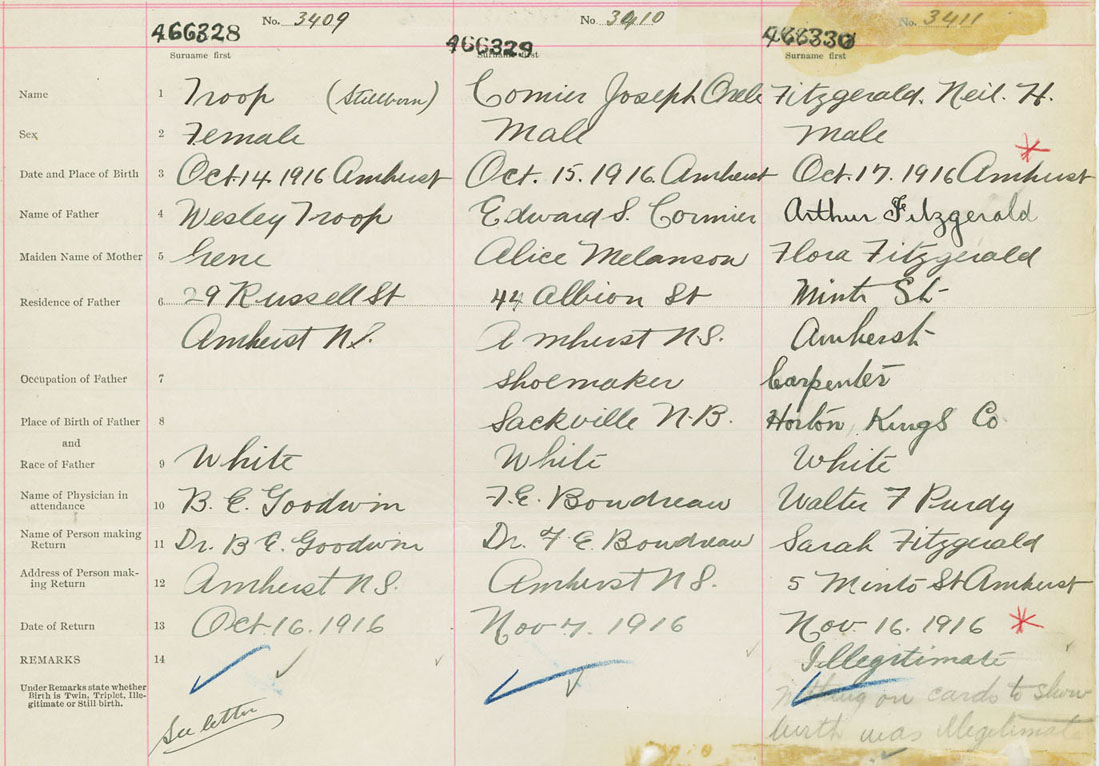 No. 3409 No. 3410 No. 3411
466328 466329 466330
Surname first Surname first Surname first
Name 1 Troop (Stillborn) Comier Joseph Fitzgerald. Neil. H.
Sex 2 Female Male Male
Date and Place of Birth 3 Oct. 14. 1916 Amherst Oct. 15. 1916. Amherst Oct. 17. 1916 Amherst
Name of Father 4 Wesley Troop Edward S. Cormier Arthur Fitzgerald
Maiden Name of Mother 5 Alice Melanson Flora Fitzgerald
Residence of Father 6 29 Russell St 44 Albion St Minto St
Amherst N.S. Amherst N.S. Amherst
Occupation of Father 7 shoemaker Carpenter
Place of Birth of Father 8 Sackville N.B. Horton Kings Co
and
Race of Father 9 White White White
Name of Physician in
attendance 10 B. E. Goodwin F. E. Boudreau Walter F Purdy
Name of Person making
Return 11 Dr. B E. Goodwin Dr. F E. Boudreau Sarah Fitzgerald
Address of Person mak-
ing Return 12 Amherst N.S. Amherst N.S. 5 Minto St Amherst
Date of Return 13 Oct. 16. 1916 Nov 7. 1916 Nov. 16. 1916
REMARKS 14 Illegitimate
Under Remarks state whether
Birth is Twin, Triplet, Ille-
gitimate or Still birth.
Nothing on cards to show
birth was illegitimate
See letter